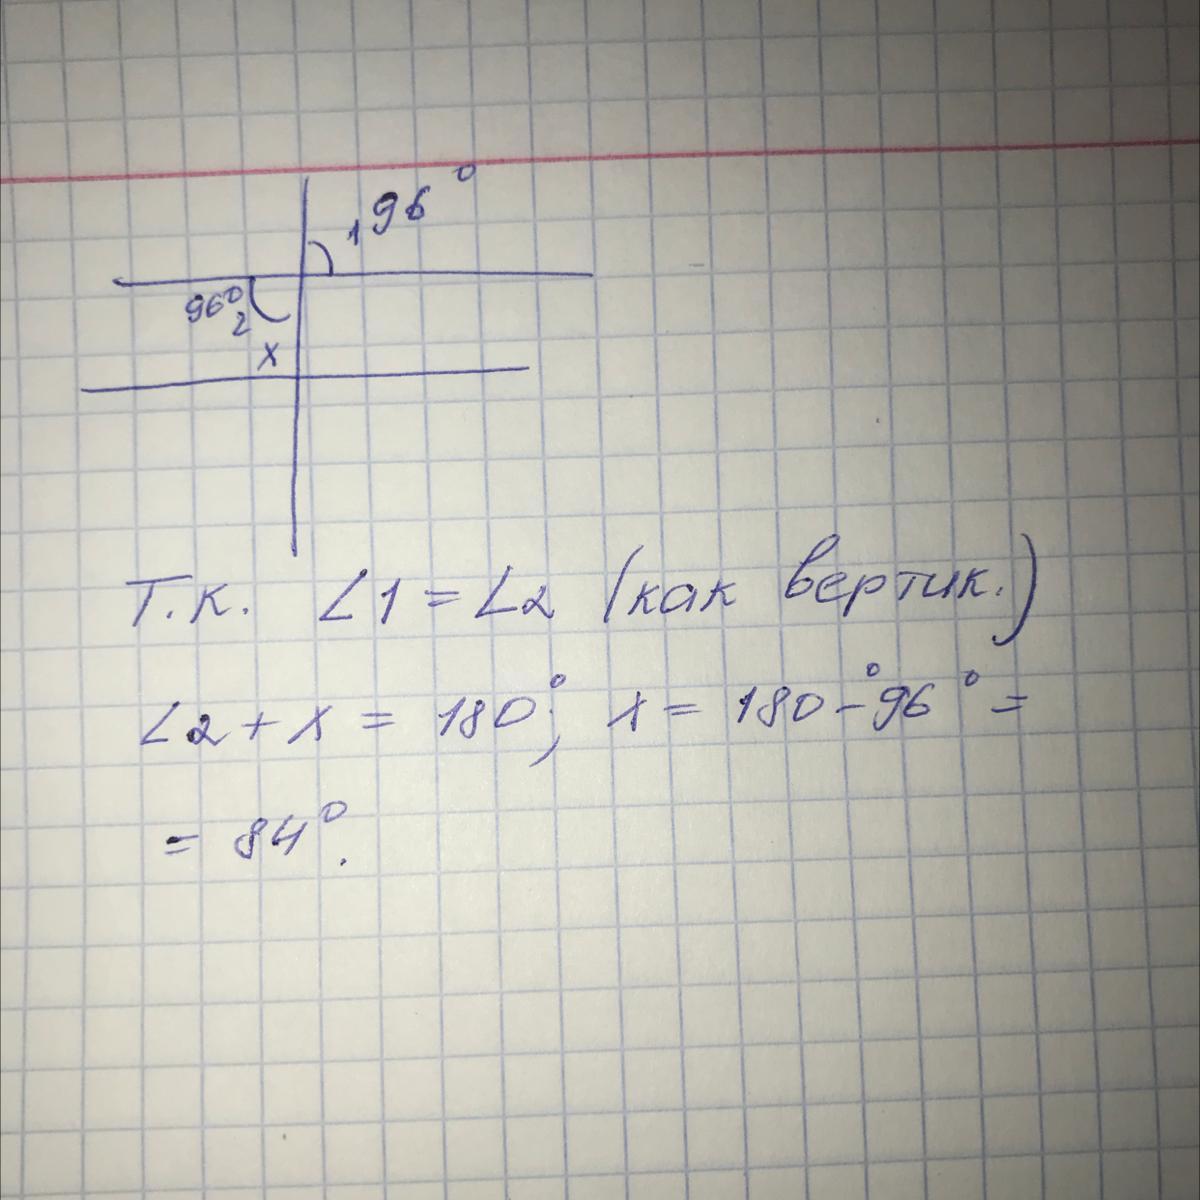 1 96°
96°
2
x
Т.к. ∠1 = ∠2 (как вертик.)
∠2 + x = 180°; x = 180°-96° =
= 84°.